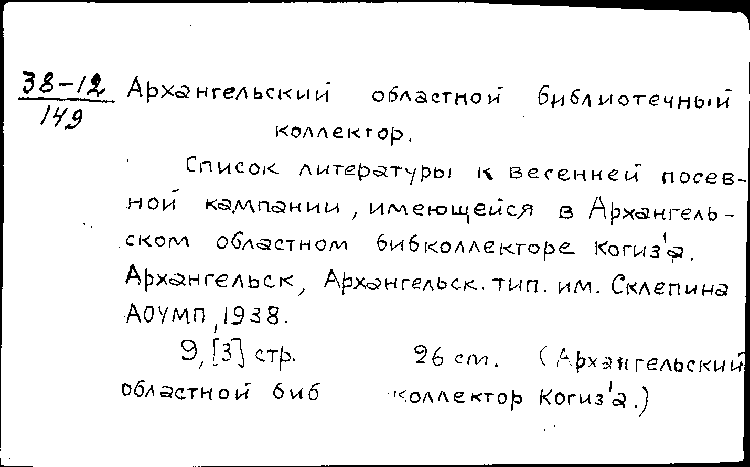 38-12 Архангельский областной библиотечный
149
коллектор.
Список литературы к весенней посев-
ной кампании, имеющейся в Архангель-
ском областном бибколлекторе Когиз'а.
Архангельск, Архангельск. тип. им. Склепина
АОУМП, 1938.
9, [3] стр. 26 см. (Архангельский
областной биб коллектор Когиз'а.)